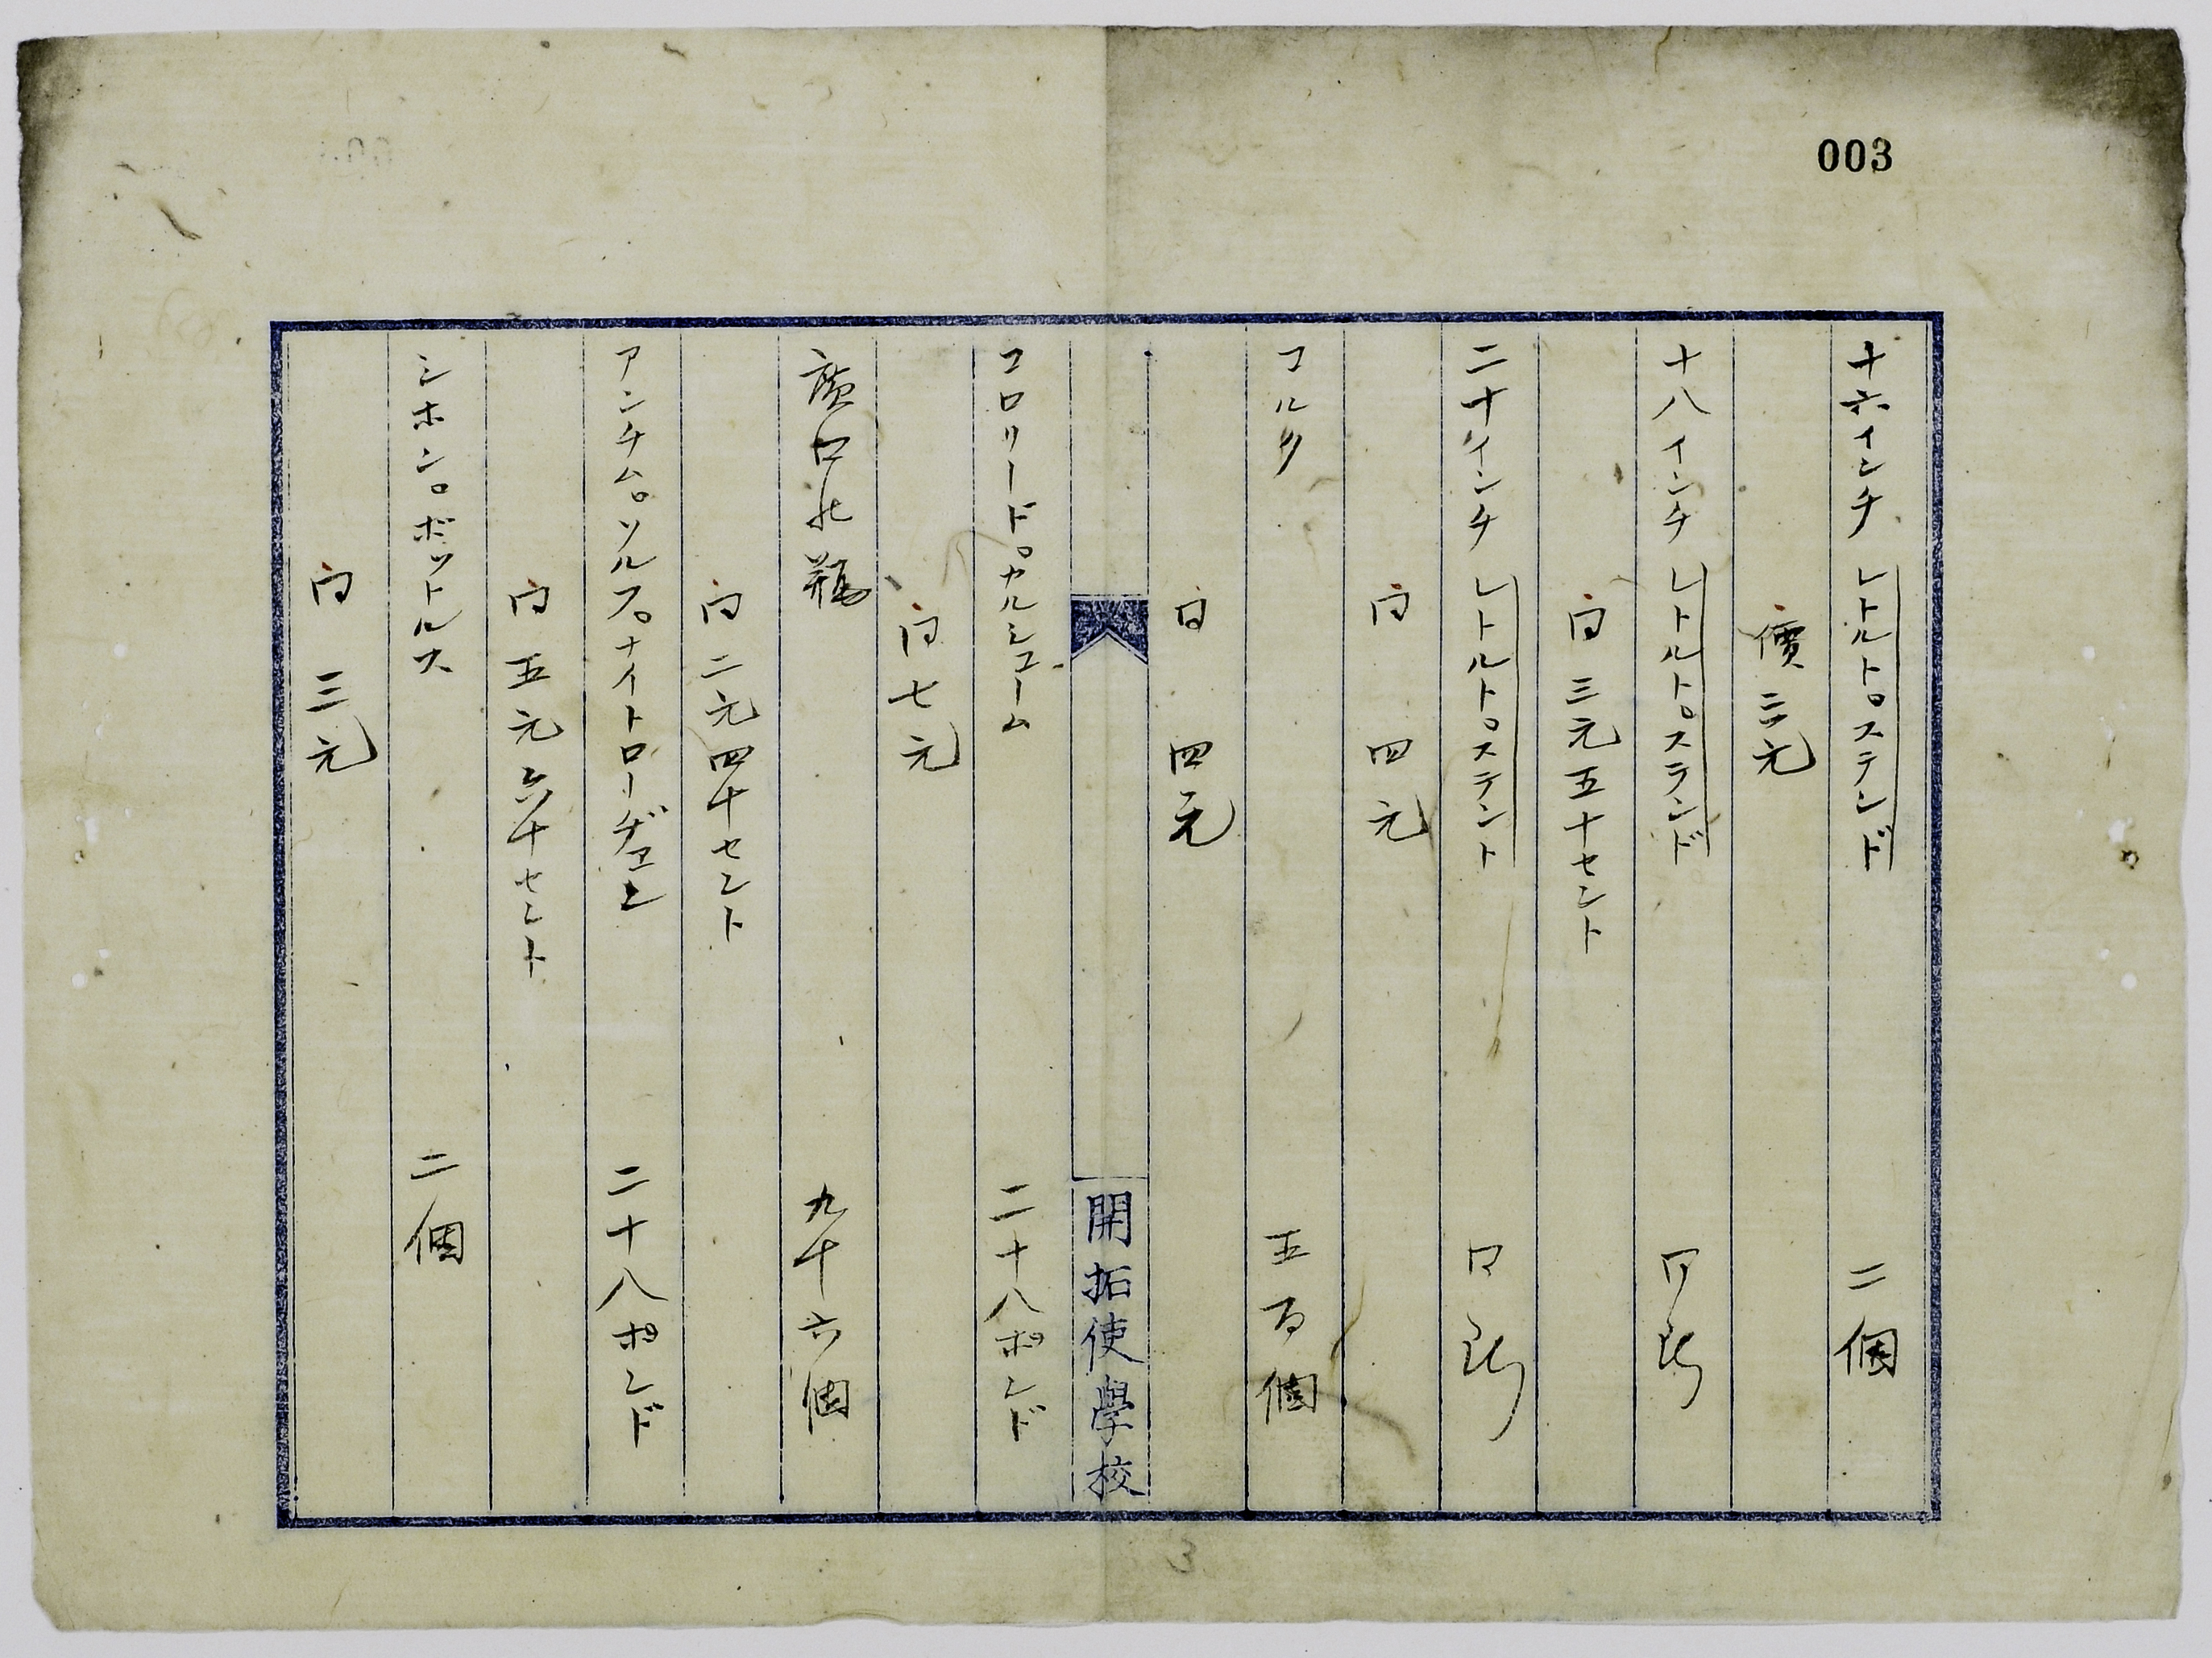 003
十六インチ レトルト。ステンド 二個
價 三元
十八インチ レトルト。ステンド 同断
同 三元五十セント
二十インチ レトルト。ステント 同断
同 四元
コルク 五百個
同 四元
開拓使學校
コロリード。カルシユーム 二十八ポンド
同 七元
廣口 瓶 九十六個
同 二元四十セント
アンチム。ソルフ。ナイトローヂエン 二十八ポンド
同 五元六十セント
シホン。ボットルス 二個
同 三元
3